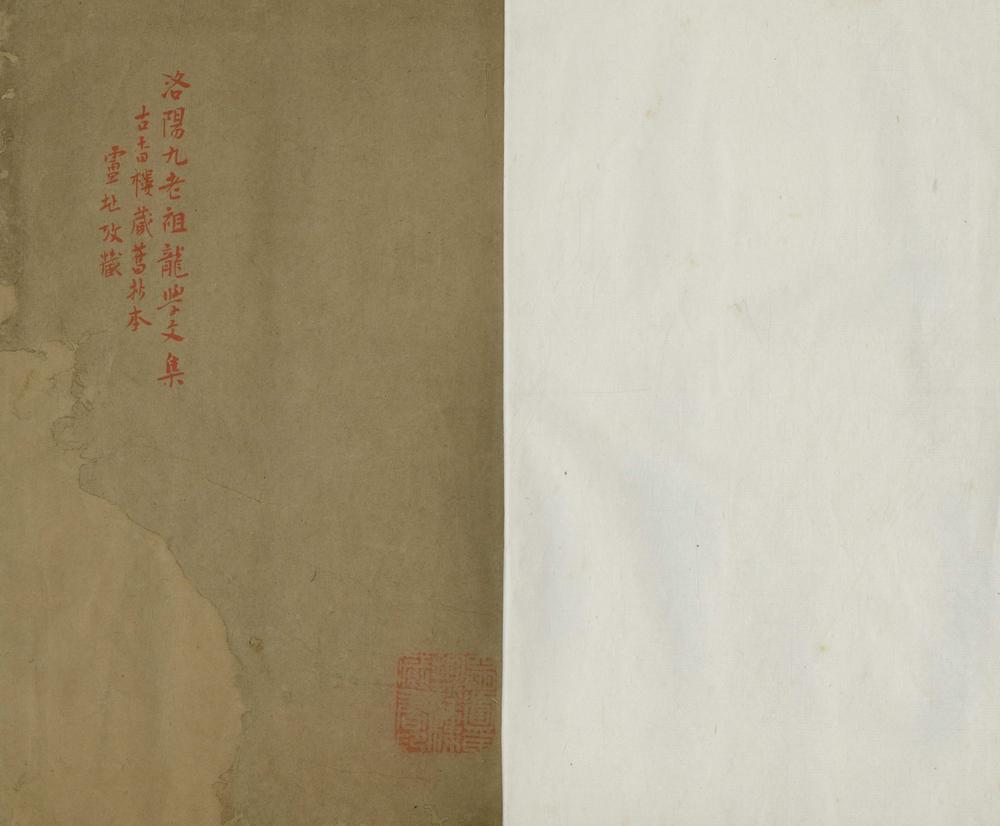 洛陽九老祖龍學文集
古香樓藏舊抄本
靈址攷藏